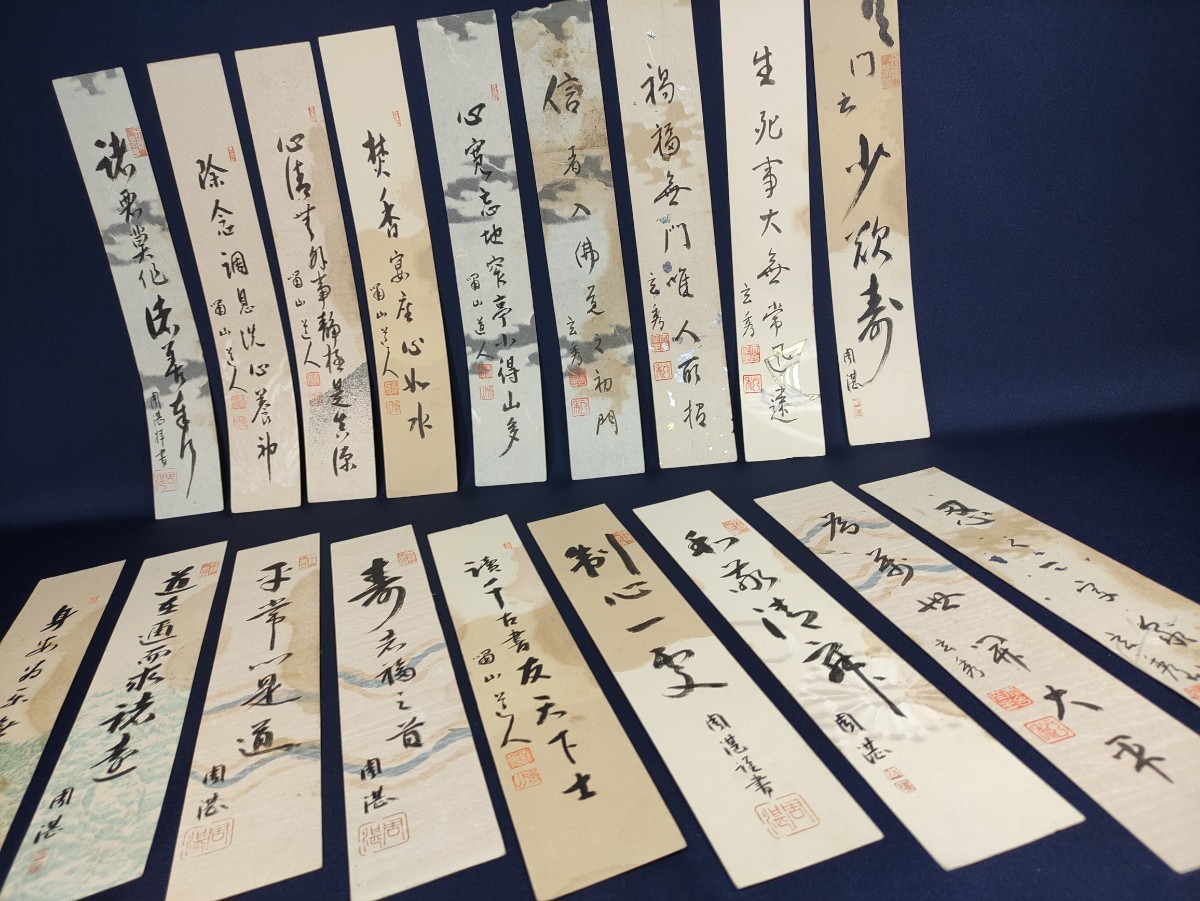 諸悪莫作 衆善奉行
周湛拝書
除念調息洗心養神
蜀山道人
心清無外事静極是真源
蜀山道人
焚香宴座心如水
蜀山道人
心寛忘地窄亭小得山多
蜀山道人
信者入佛道之初門
玄秀
禍福無門唯人所招
玄秀
生死事大無常迅速
玄秀
少欲寿
周湛
身安為樂
道在邇而求諸遠
周湛
平常心是道
周湛
寿者福之首
周湛
読千古書友天下士
蜀山道人
制心一処
周湛謹書
和敬清寂
周湛
為萬世開太平
玄秀
忍
玄秀